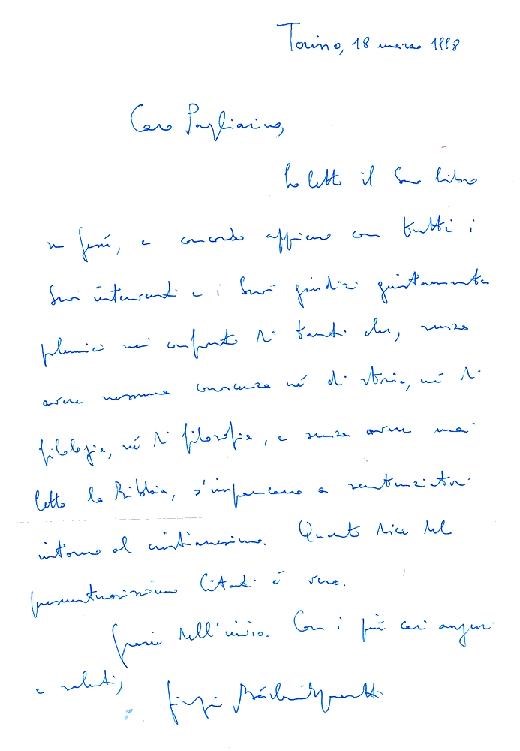 Torino, 18 marzo 1998
Caro Pagliarino,
ho letto il Suo libro
su Gesù, e concordo appieno con tutti i
Suoi intenti e i Suoi giudizi giustamente
polemici nei confronti di tanti che, senza
avere nessuna conoscenza né di storia, né di
filologia, né di filosofia, e senza avere mai
letto la Bibbia, s'impancano a sentenziatori
intorno al cristianesimo. Quanto dice del
presuntuosissimo Citati è vero.
Grazie dell'invio. Con i più cari auguri
e saluti,
Giorgio Bárberi Squarotti